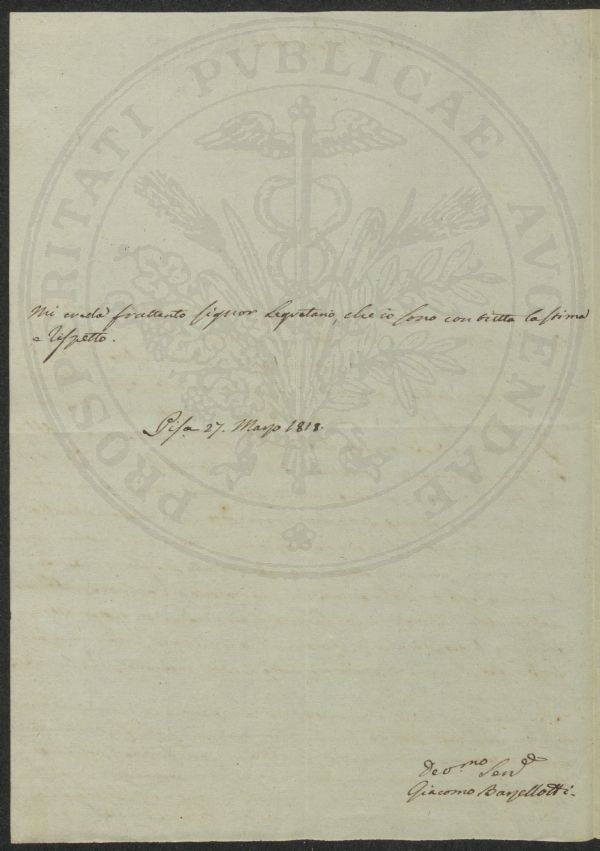 PROSPERITATI PVBLICAE AVGENDAE
Mi creda frattanto Signor Segretario, che io sono con tutta la stima
e rispetto.
Pisa 27. Marzo 1818.
Devmo Serve
Giacomo Barzellotti.